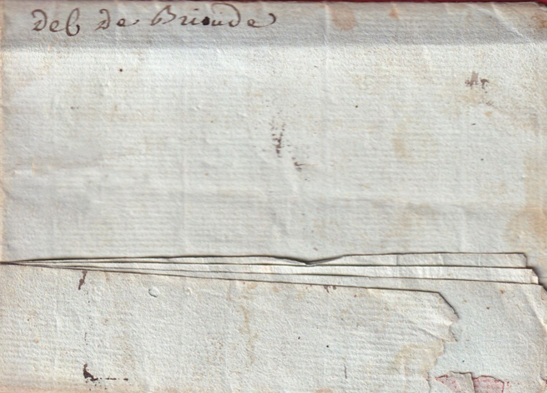 deb de Brioude